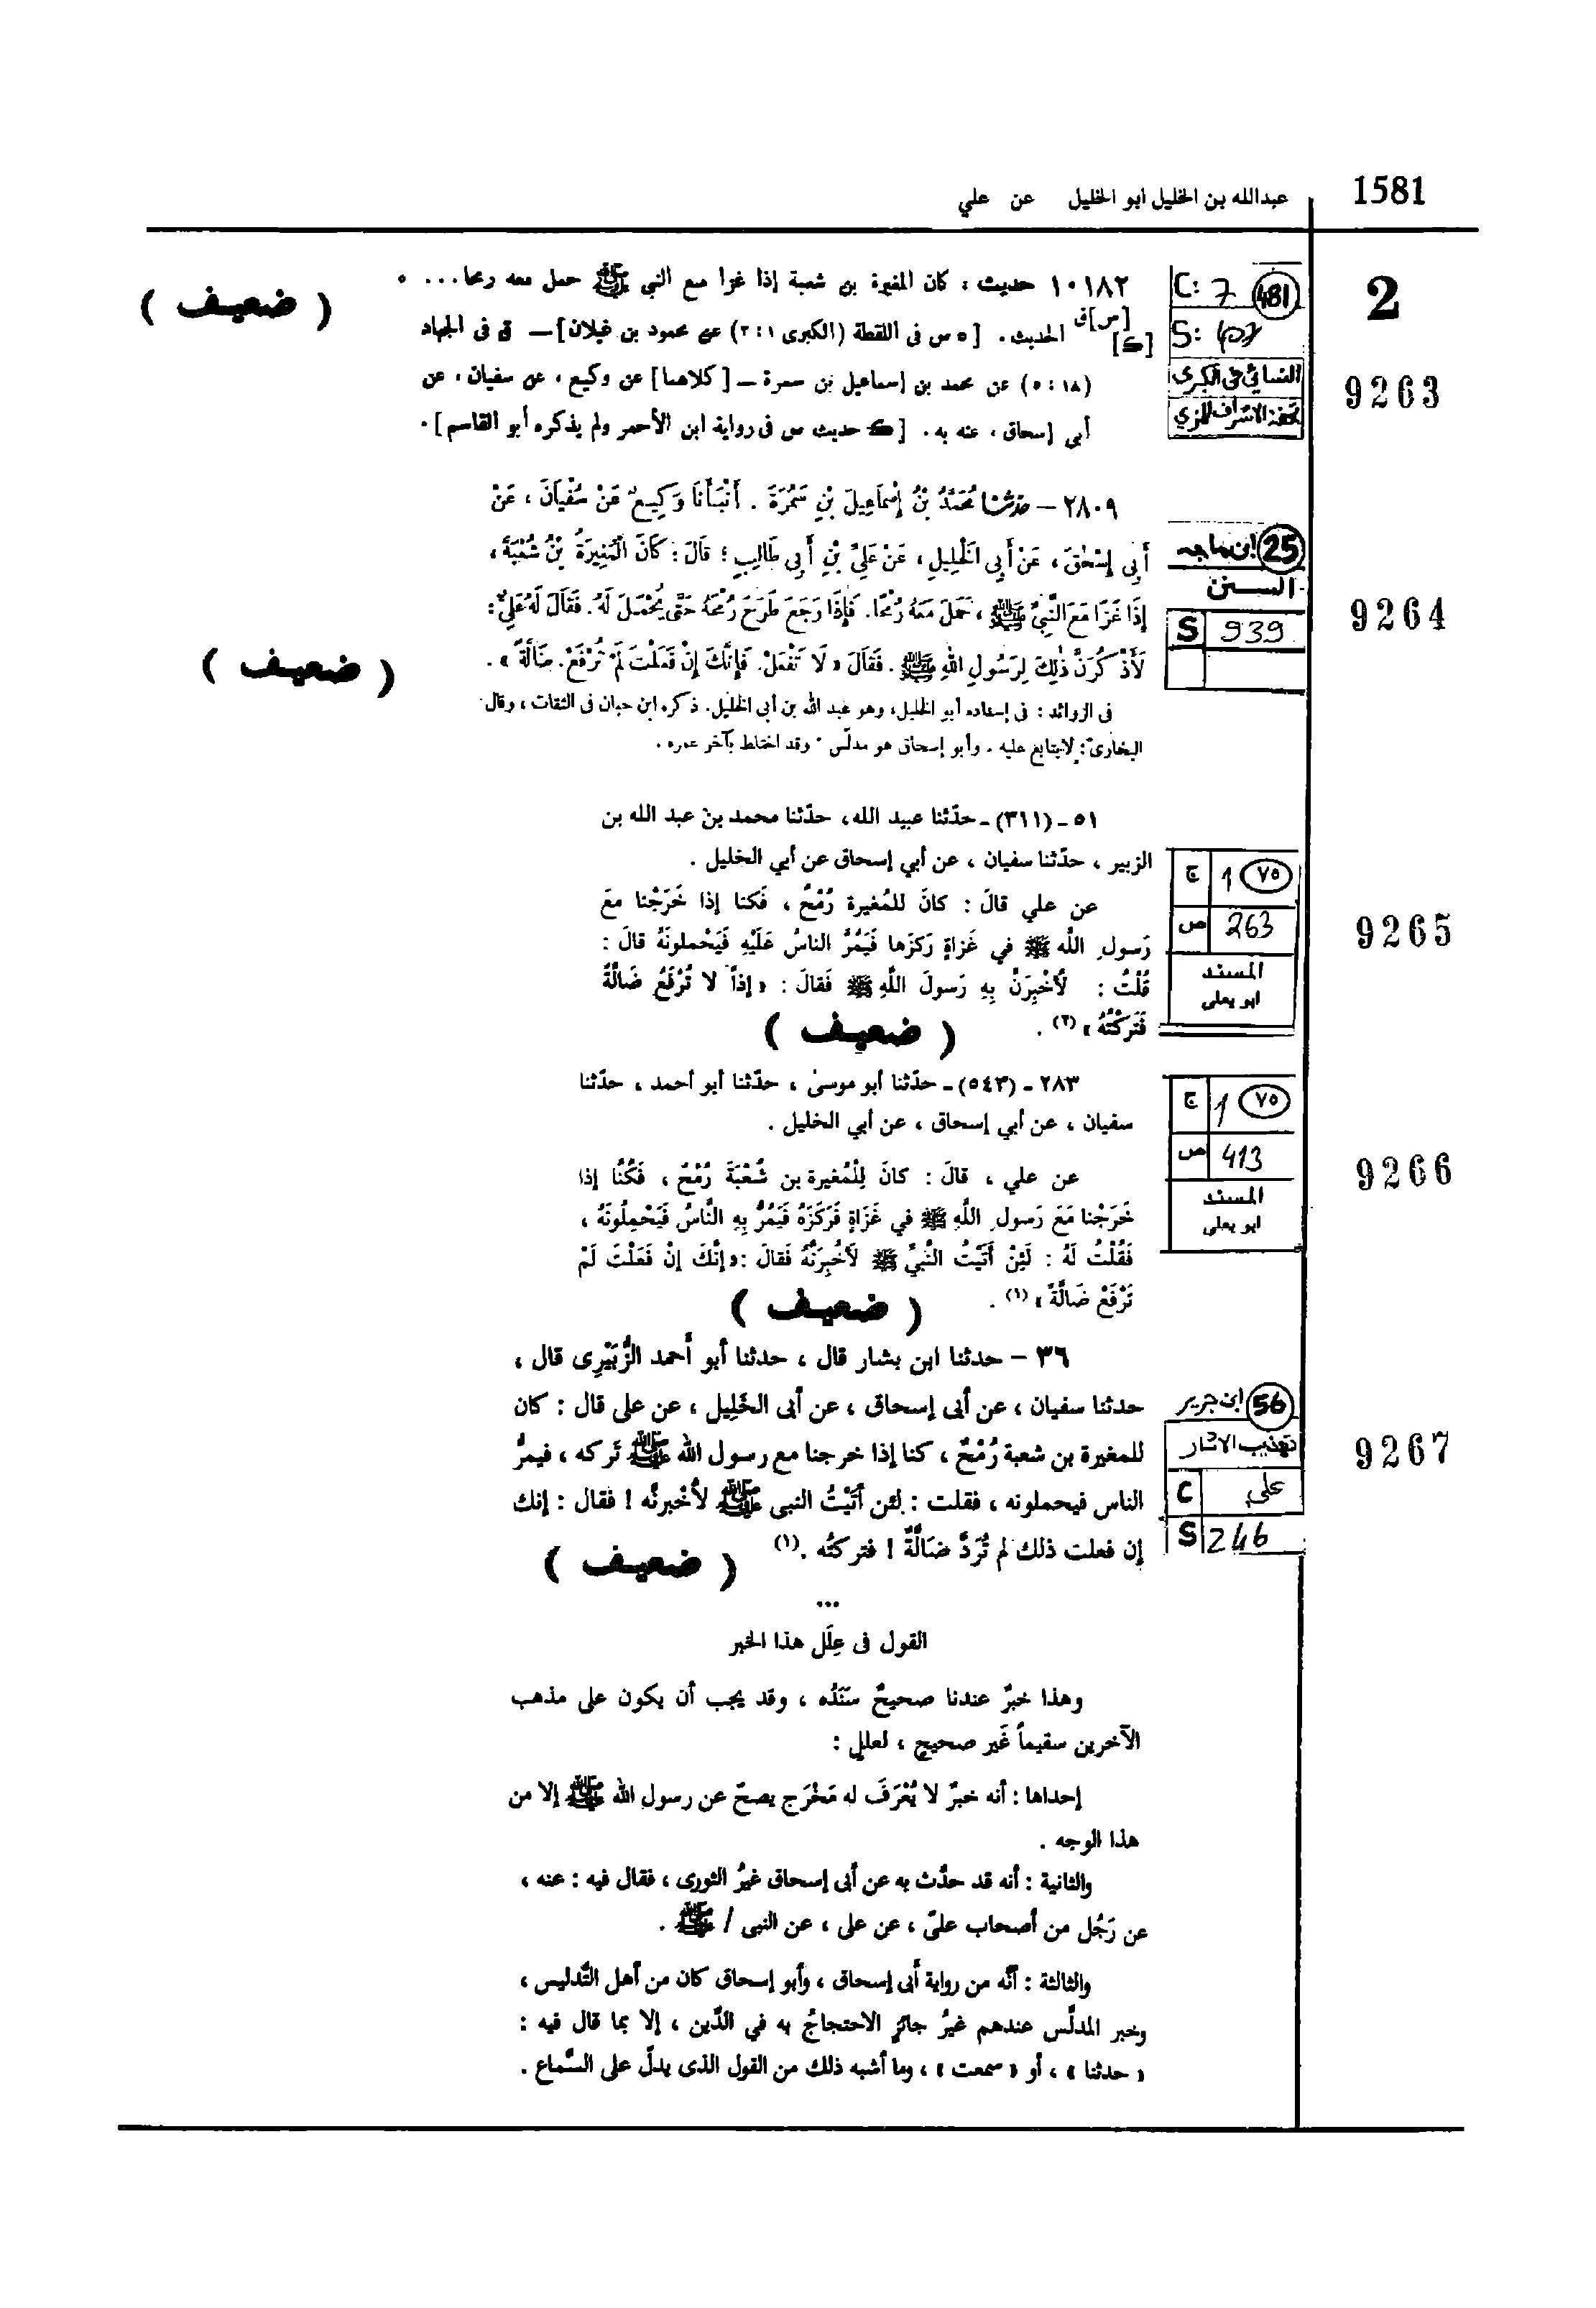 1581
عبدالله بن الخليل ابو الخليل عن علي
2
C: 7 481
S: 407
النسائي في الكبرى
تحفة الاشراف للمزي
9263
١٠١٨٢ حديث : كان المغيرة بن شعبة إذا غزا مع النبي ﷺ حمل معه رمحا... ٥
[س] ق [ك] الحديث . [ ٥ س فى اللقطة (الكبرى ٢:١) عن محمود بن غيلان] — ق فى الجهاد
(١٨ : ٥) عن محمد بن إسماعيل بن سمرة — [كلاهما] عن وكيع ، عن سفيان ، عن
أبي إسحاق ، عنه به . [ك حديث س فى رواية ابن الأحمر ولم يذكره أبو القاسم] .
( ضعيف )
9264
25 ابن ماجه
السنن
S 939
٢٨٠٩ — حدثنا مُحَمَّدُ بْنُ إِسْمَاعِيلَ بْنِ سَمُرَةَ . أَنْبَأَنَا وَكِيعٌ عَنْ سُفْيَانَ ، عَنْ
أَبِى إِسْحٰقَ ، عَنْ أَبِى الْخَلِيلِ ، عَنْ عَلِيِّ بْنِ أَبِى طَالِبٍ ؛ قَالَ : كَانَ الْمُغِيرَةُ بْنُ شُعْبَةَ ،
إِذَا غَزَا مَعَ النَّبِيِّ ﷺ ، حَمَلَ مَعَهُ رُمْحًا . فَإِذَا رَجَعَ طَرَحَ رُمْحَهُ حَتَّى يُحْمَلَ لَهُ . فَقَالَ لَهُ عَلِيٌّ :
لَأَذْكُرَنَّ ذٰلِكَ لِرَسُولِ اللهِ ﷺ . فَقَالَ « لَا تَفْعَلْ. فَإِنَّكَ إِنْ فَعَلْتَ لَمْ تُرْفَعْ. ضَالَّةً » .
( ضعيف )
فى الزوائد : فى إسناده أبو الخليل، وهو عبد الله بن أبى الخليل. ذكره ابن حبان فى الثقات ، وقال
البخارىّ: لايتابع عليه . وأبو إسحاق هو مدلّس . وقد اختلط بآخر عمره .
9265
ج 1 ٧٥
ص 263
المسند
ابو يعلى
٥١ ـ (٣١١) ـ حدّثنا عبيد الله، حدّثنا محمد بن عبد الله بن
الزبير ، حدّثنا سفيان ، عن أبي إسحاق عن أبي الخليل .
عن علي قالَ : كانَ للمُغيرة رُمْحٌ ، فَكنا إذا خَرَجْنا معَ
رَسولِ اللَّه ﷺ في غَزاةٍ رَكزَها فَيَمُرُّ الناسُ عَلَيْهِ فَيَحْملونَهُ قالَ :
قُلْتُ : لأُخْبِرَنَّ بِهِ رَسولَ اللَّهِ ﷺ فَقالَ : « إذاً لا تُرْفَعُ ضَالَّةٌ
فَتَرَكْتُهُ » (٢) .
( ضعيف )
9266
ج 1 ٧٥
ص 413
المسند
ابو يعلى
٢٨٣ ـ (٥٤٣) ـ حدّثنا أبو موسىٰ ، حدّثنا أبو أحمد ، حدّثنا
سفيان ، عن أبي إسحاق ، عن أبي الخليل .
عن علي ، قالَ : كانَ لِلْمُغيرة بن شُعْبَةَ رُمْحٌ ، فَكُنَّا إذا
خَرَجْنا مَعَ رَسولِ اللَّهِ ﷺ في غَزاةٍ فَرَكَزَهُ فَيَمُرُّ بِهِ النَّاسُ فَيَحْمِلُونَهُ ،
فَقُلْتُ لَهُ : لَئِنْ أَتَيْتُ النَّبيَّ ﷺ لأُخْبِرَنَّهُ فَقالَ :« إنَّكَ إنْ فَعَلْتَ لَمْ
تَرْفَعْ ضَالَّةً » (١) .
( ضعيف )
9267
56 ابن جرير
تهذيب الاثار
C علي
S 246
٣٦ — حدثنا ابن بشار قال ، حدثنا أبو أحمد الزُّبَيْرِى قال ،
حدثنا سفيان ، عن أبى إسحاق ، عن أبى الخَلِيل ، عن على قال : كان
للمغيرة بن شعبة رُمْحٌ ، كنا إذا خرجنا مع رسول الله ﷺ تَركه ، فيمرُّ
الناس فيحملونه ، فقلت : لئن أتَيْتُ النبى ﷺ لأُخْبرنَّه ! فقال : إنك
إن فعلت ذلك لم تُرَدَّ ضَالَّةٌ ! فتركتُه .(١)
( ضعيف )
...
القول فى عِلَل هذا الخبر
وهذا خبرٌ عندنا صحيحٌ سَنَدُه ، وقد يجب أن يكون على مذهب
الآخرين سقيماً غَير صحيحٍ ، لعللٍ :
إحداها : أنه خبرٌ لا يُعْرَفَ له مَخْرَج يصحّ عن رسول الله ﷺ إلا من
هذا الوجه .
والثانية : أنه قد حدَّث به عن أبى إسحاق غيرُ الثورى ، فقال فيه : عنه ،
عن رَجُل من أصحاب علىّ ، عن على ، عن النبى / ﷺ .
والثالثة : أنَّه من رواية أبى إسحاق ، وأبو إسحاق كان من أهل التَّدليس ،
وخبر المدلَّس عندهم غيرُ جائزٍ الاحتجاجُ به في الدِّين ، إلا بما قال فيه :
« حدثنا » ، أو « سمعت » ، وما أشبه ذلك من القول الذى يدلّ على السَّماع .